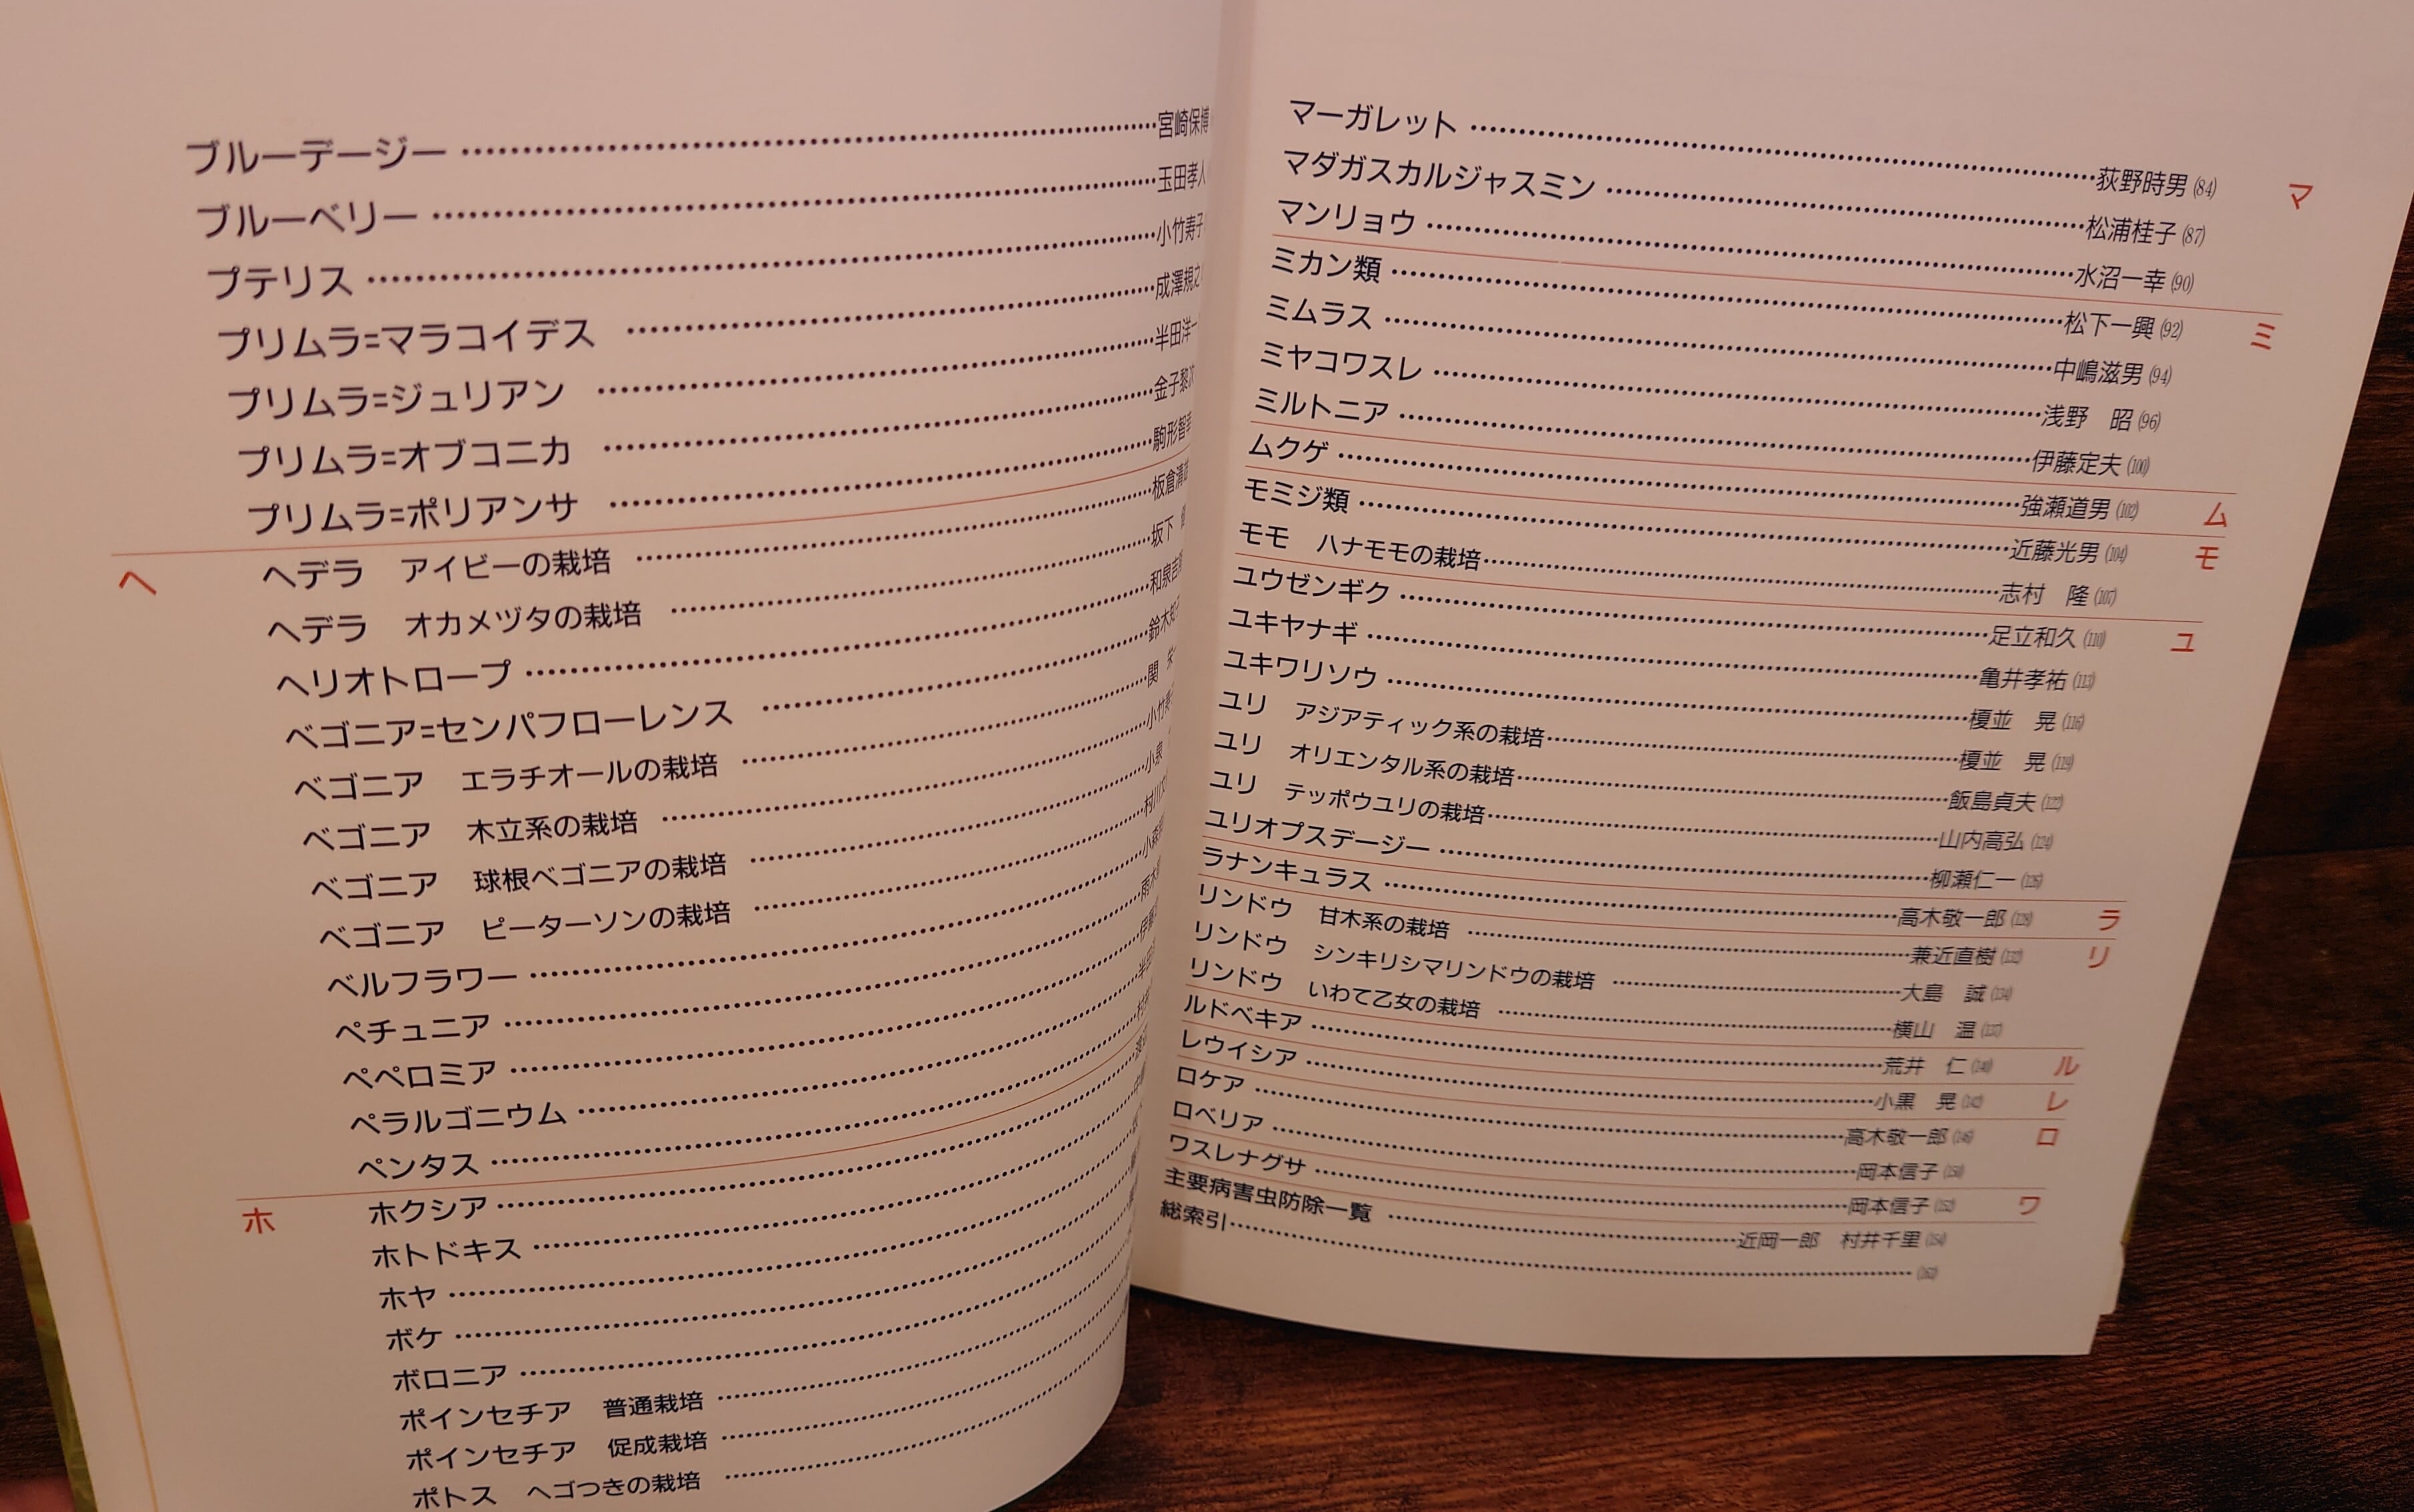 ブルーデージー……宮崎保博
ブルーベリー……玉田孝人
プテリス……小竹寿子
プリムラ=マラコイデス……成澤規之
プリムラ=ジュリアン……半田洋一
プリムラ=オブコニカ……金子黎次
プリムラ=ポリアンサ……駒形智幸
ヘ
ヘデラ　アイビーの栽培……板倉清
ヘデラ　オカメヅタの栽培……坂下
ヘリオトロープ……和泉吉
ベゴニア=センパフローレンス……鈴木和
ベゴニア　エラチオールの栽培……関　栄
ベゴニア　木立系の栽培……小竹
ベゴニア　球根ベゴニアの栽培……小泉
ベゴニア　ピーターソンの栽培……村川
ベルフラワー……小森
ペチュニア……雨木
ペペロミア……伊藤
ペラルゴニウム……半田
ペンタス……
ホ
ホクシア……
ホトドキス……
ホヤ……
ボケ……
ボロニア……
ポインセチア　普通栽培……
ポインセチア　促成栽培……
ポトス　ヘゴつきの栽培……
マーガレット……荻野時男(84)
マ
マダガスカルジャスミン……松浦桂子(87)
マンリョウ……水沼一幸(90)
ミカン類……松下一興(92)
ミ
ミムラス……中嶋滋男(94)
ミヤコワスレ……浅野　昭(96)
ミルトニア……伊藤定夫(100)
ムクゲ……強瀬道男(102)
ム
モミジ類……近藤光男(104)
モ
モモ　ハナモモの栽培……志村　隆(107)
ユウゼンギク……足立和久(110)
ユ
ユキヤナギ……亀井孝祐(113)
ユキワリソウ……榎並　晃(116)
ユリ　アジアティック系の栽培……榎並　晃(119)
ユリ　オリエンタル系の栽培……飯島貞夫(122)
ユリ　テッポウユリの栽培……山内高弘(124)
ユリオプスデージー……柳瀬仁一(126)
ラナンキュラス……高木敬一郎(128)
ラ
リンドウ　甘木系の栽培……兼近直樹(132)
リ
リンドウ　シンキリシマリンドウの栽培……大島　誠(134)
リンドウ　いわて乙女の栽培……横山　温(137)
ルドベキア……荒井　仁(140)
ル
レウイシア……小黒　晃(142)
レ
ロケア……高木敬一郎(146)
ロ
ロベリア……岡本信子(150)
ワスレナグサ……岡本信子(152)
ワ
主要病害虫防除一覧……近岡一郎　村井千里(154)
総索引……